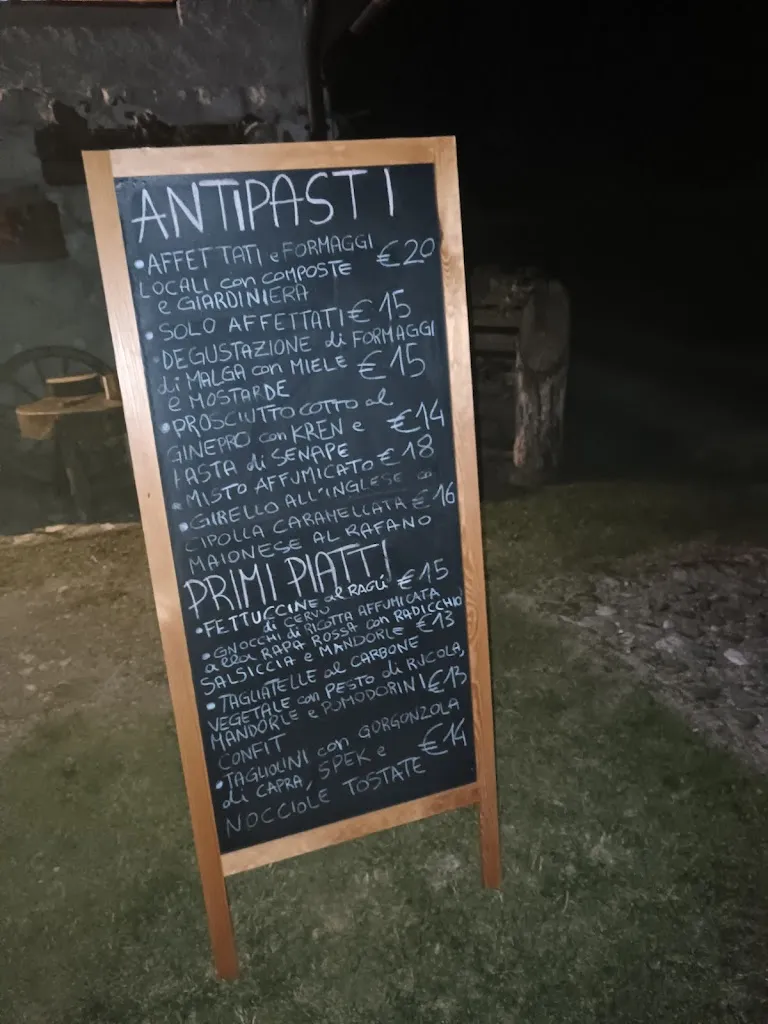 ANTIPASTI
• AFFETTATI e FORMAGGI €20
LOCALI con COMPOSTE
e GIARDINIERA
• SOLO AFFETTATI €15
DEGUSTAZIONE di FORMAGGI
di MALGA con MIELE €15
e MOSTARDE
• PROSCIUTTO COTTO al
GINEPRO con KREN e €14
PASTA di SENAPE
• MISTO AFFUMICATO €18
• GIRELLO ALL'INGLESE
CIPOLLA CARAMELLATA €16
MAIONESE AL RAFANO
PRIMI PIATTI
• FETTUCCINE al RAGÚ €15
di CERVO
• GNOCCHI di RICOTTA AFFUMICATA
alla RAPA ROSSA con RADICCHIO
SALSICCIA e MANDORLE €13
• TAGLIATELLE al CARBONE
VEGETALE con PESTO di RUCOLA,
MANDORLE e POMODORINI €13
CONFIT
• TAGLIOLINI con GORGONZOLA
di CAPRA, SPEK e €14
NOCCIOLE TOSTATE